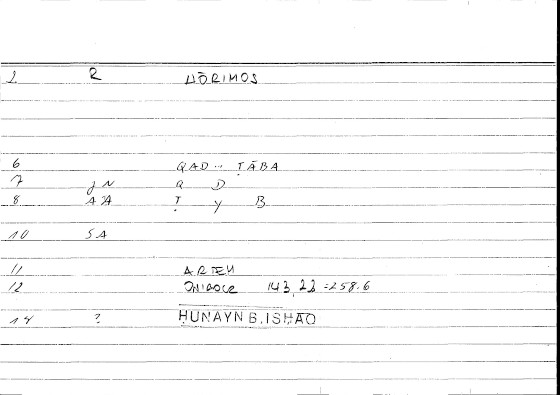 2 R HŌRIMOS
6 QAD... ṬĀBA
7 jN Q D
8 AA Ṭ Y B
10 SA
11 ARTEM
12 143,22 = 258.6
14 ? ḤUNAYN B. ISḤAQ